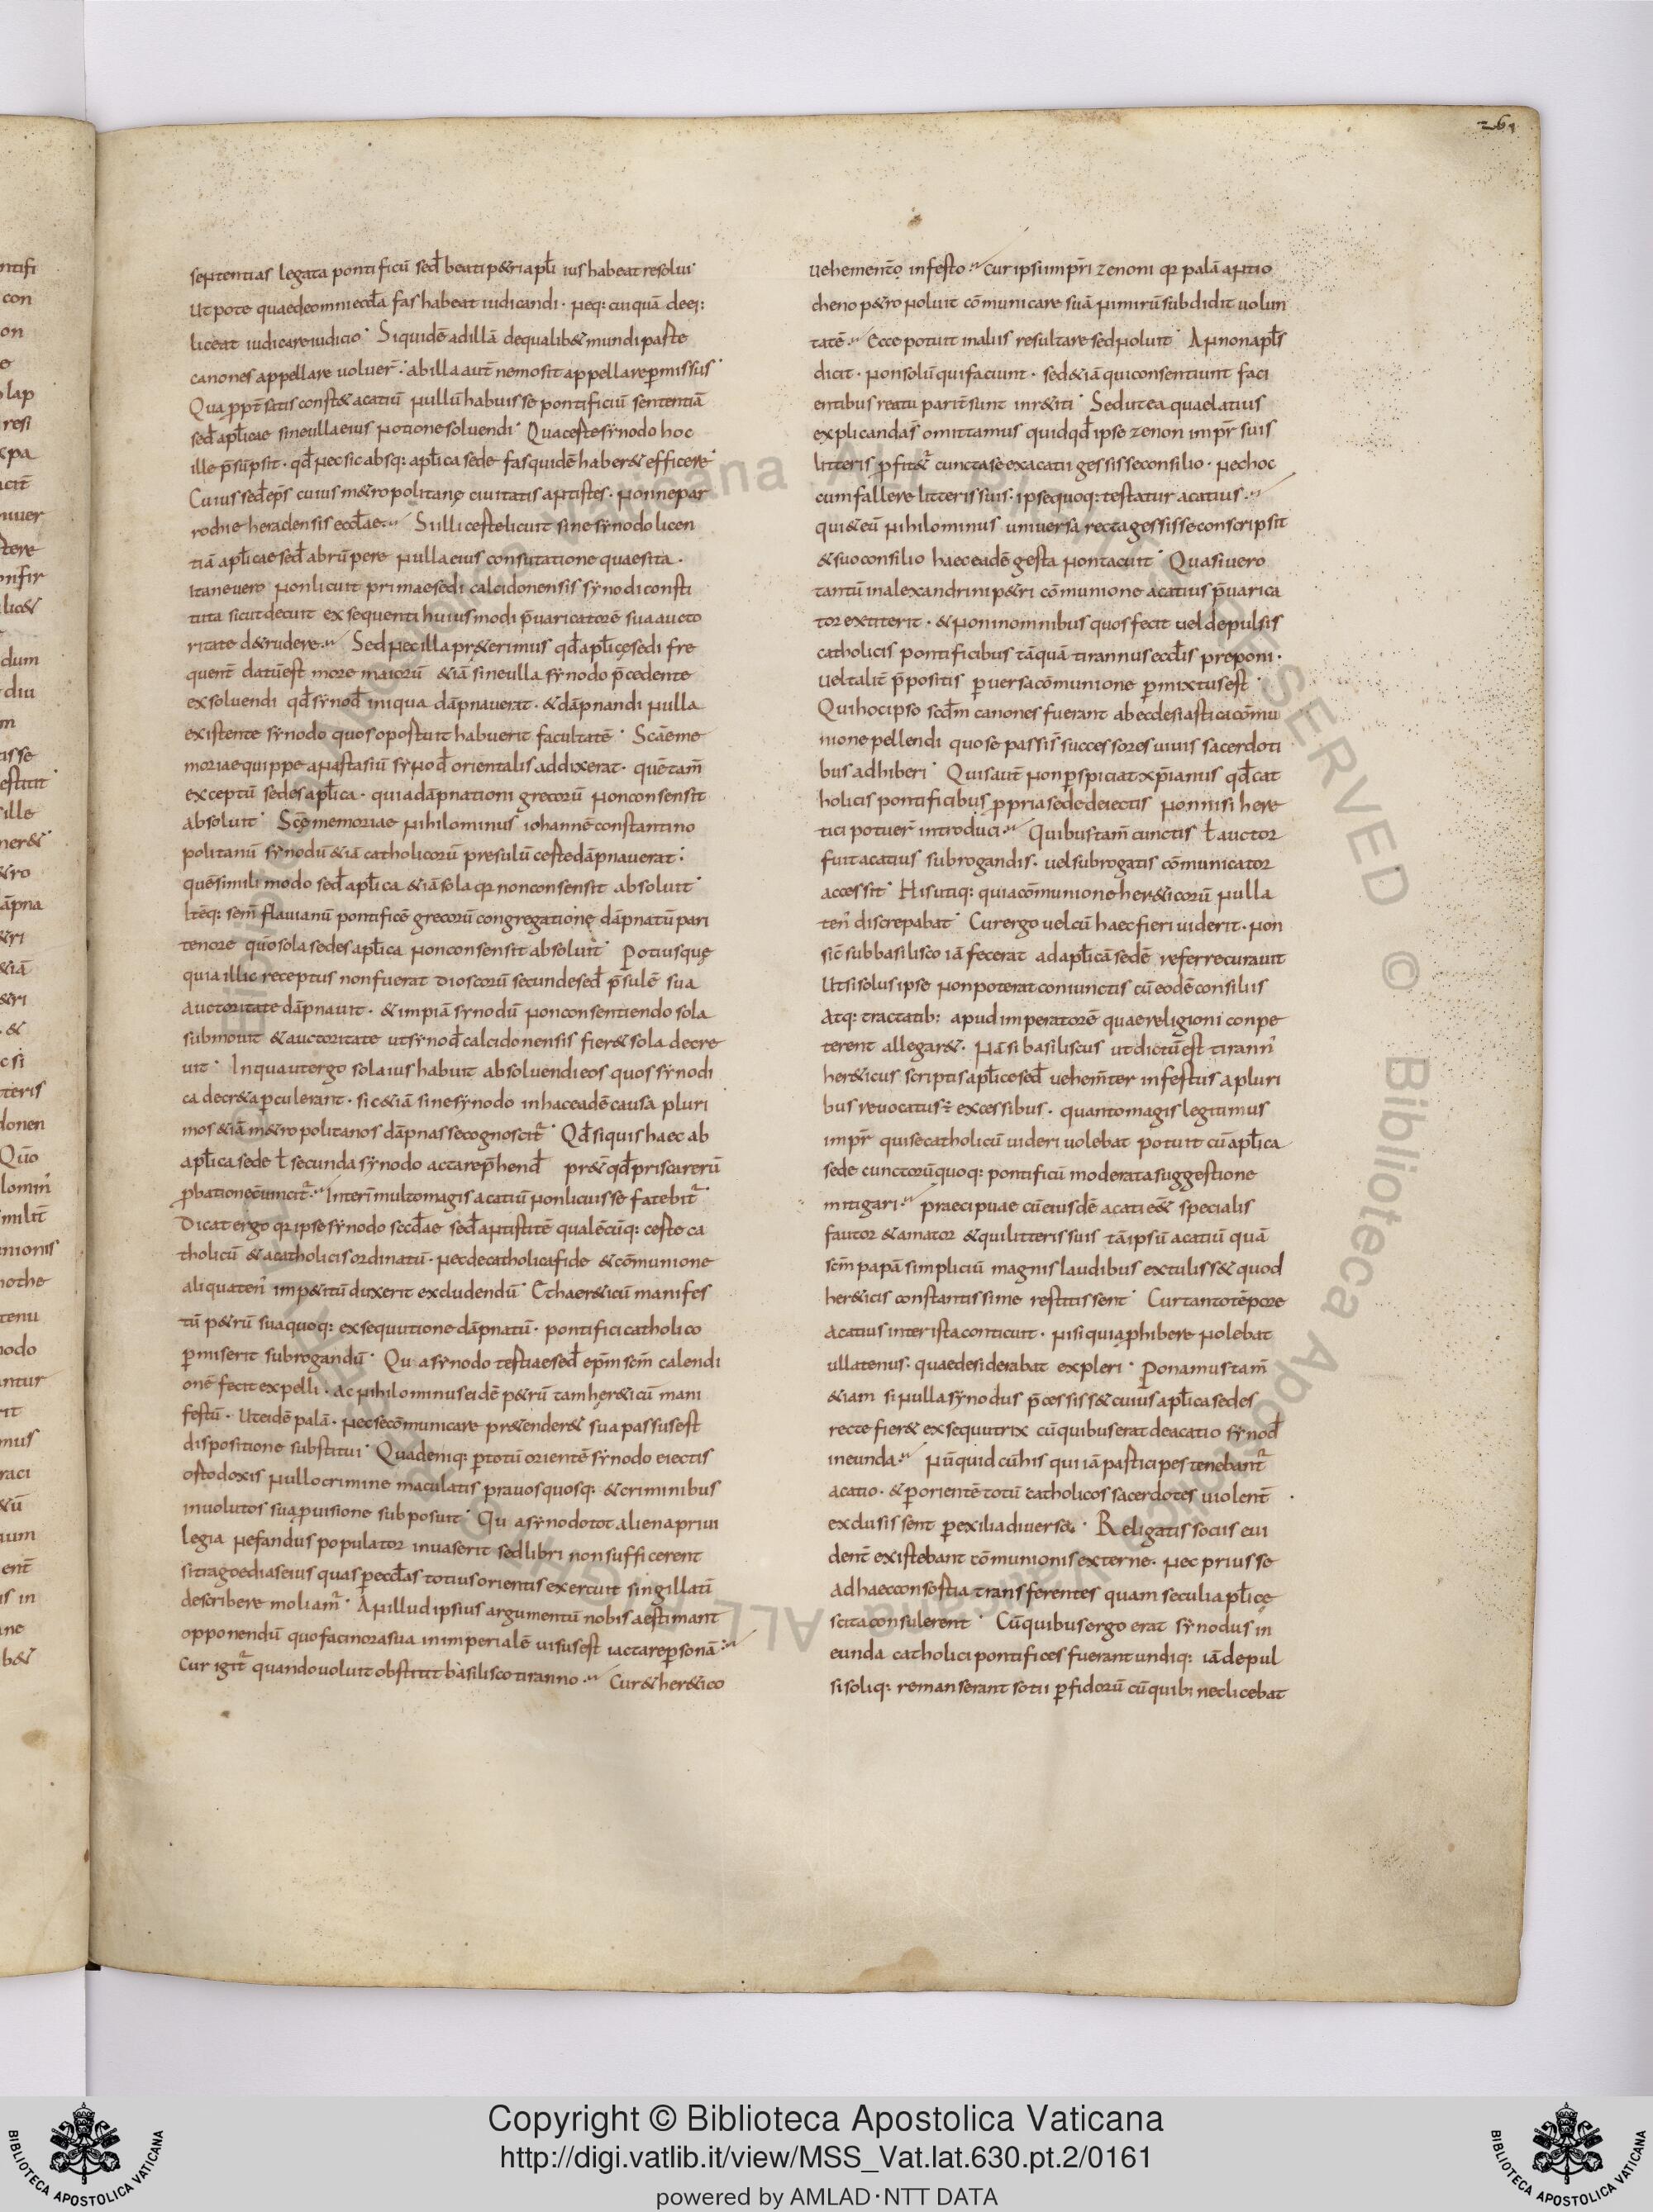 261
sententias legata pontificū sed̄ beati p&ri apl̄i ius habeat resolui·
Ut pote quae de omni eccl̄a fas habeat iudicandi· neq: cuiquā de ei:
liceat iudicare iudicio· Siquidē ad illā de qualib& mundi parte
canones appellare uoluer̄· ab illa aut̄ nemo sit appellare p̄missus·
Qua ppt̄ satis const& acatiū nullū habuisse pontificiū sententiā
sed̄ apl̄icae sine ulla eius notione soluendi· Qua certe synodo hoc
ille p̄sūpsit· qd̄ nec sic absq: apl̄ica sede fas quidē haber& efficere·
Cuius sed̄ ep̄s cuius m&ropolitanę ciuitatis antistes· nonne par
rochie heraclensis eccl̄ae· Si illi certe licuit sine synodo licen
tiā apl̄icae sed̄ abrūpere nulla eius consutatione quaesita·
Itane uero non licuit primae sedi calcidonensis synodi consti
tuta sicut decuit exsequenti huiusmodi p̄uaricatorē sua aucto
ritate d&rudere· Sed nec illa pr&erimus qd̄ apl̄icę sedi fre
quent̄ datū est more maiorū &iā sine ulla synodo p̄cedente
exsoluendi qd̄ synod̄ iniqua dāpnauerat· & dāpnandi nulla
existente synodo quos oportuit habuerit facultatē· Sc̄ae me
moriae quippe anastasiū synod̄ orientalis addixerat· quē tam̄
exceptū sedes apl̄ica· quia dāpnationi grecorū non consensit
absoluit· Sc̄ę memoriae nihilominus iohannē constantino
politanū synodū &iā catholicorū presulū certe dāpnauerat·
quē simili modo sed̄ apl̄ica &iā sola qr non consensit absoluit·
Itēq: sc̄m flauianū pontificē grecorū congregationę dāpnatū pari
tenore qūo sola sedes apl̄ica non consensit absoluit· Potiusque
quia illic receptus non fuerat dioscorū secunde sed̄ p̄sulē sua
auctoritate dāpnauit· & impiā synodū non consentiendo sola
submouit & auctoritate ut synod̄ calcidonensis fier& sola decre
uit· In qua ut ergo sola ius habuit absoluendi eos quos synodi
ca decr&a pculerant· sic &iā sine synodo in hac eadē causa pluri
mos &iā m&ropolitanos dāpnasse cognoscit̄· Qd̄ si quis haec ab
apl̄ica sede ł secunda synodo acta rep̄hend̄ pr& qd̄ priscarerū
pbatione cūuincit̄· Interī multo magis acatiū non licuisse fatebit̄·
Dicat ergo qr ipse synodo sec̄dae sed̄ antistitē qualēcūq: certe ca
tholicū & a catholicis ordinatū· nec de catholica fide & cōmunione
aliquaten̄ imp&itū duxerit excludendū· Et haer&icū manifes
tū p&rū sua quoq: exsequutione dāpnatū· pontifici catholico
p̄miserit subrogandū· Qu a synodo tertiae sed̄ ep̄m sc̄m calendi
onē fecit expelli· ac nihilominus eidē p&rū tam her&icū mani
festū· Ut eidē palā· nec se cōmunicare pr&ender& sua passus est
dispositione substitui· Qua deniq: p totū orientē synodo eiectis
ortodoxis nullo crimine maculatis prauos quosq: & criminibus
inuolutos sua puisione subposuit· Qu a synodo tot aliena priui
legia nefandus populator inuaserit sed libri non sufficerent
si tragoedias eius quas p eccl̄as totius orientis exercuit singillatī
describere moliam̄· An illud ipsius argumentū nobis aestimant
opponendū quo facinora sua in imperialē uisus est iactare psonā·
Cur igit̄ quando uoluit obstitit basilisco tiranno· Cur & her&ico
uehementọ infesto· cur ipsi imp̄ri zenoni qr palā antio
cheno p&ro noluit cōmunicare suā nimirū subdidit uolun
tatē· Ecce potuit in aliis resultare sed noluit· An non apl̄s
dicit· non solū qui faciunt· sed &iā qui consentiunt faci
entibus reatu parit̄ sunt inr&iti· Sed ut ea quae latius
explicanda s̄ omittamus quidqd̄ ipse zenon imp̄r suis
litteris pfit&̄ cuncta se ex acatii gessisse consilio· nec hoc
cum fallere litteris suis· ipse quoq: testatur acatius·
qui & eū nihilominus uniuersa recta gessisse conscripsit
& suo consilio haec eadē gesta non tacuit· Quasi uero
tantū in alexandrini p&ri cōmunione acatius p̄uarica
tor extiterit· & non in omnibus quos fecit uel depulsis
catholicis pontificibus tāquā tirannus eccl̄is preponi·
uel talit̄ p̄positis puersa cōmunione pmixtus est·
Qui hoc ipso secd̄m canones fuerant ab ecclesiastica cōmu
nione pellendi quo se passi s̄ successores uiuis sacerdoti
bus adhiberi· Quis aut̄ non pspiciat xp̄ianus qd̄ cat
holicis pontificibus ppria sede deiectis non nisi here
tici potuer̄ introduci· Quibus tam̄ cunctis ł auctor
fuit acatius subrogandis· uel subrogatis cōmunicator
accessit· His utiq: quia cōmunione her&icorū nulla
ten̄ discrepabat· Cur ergo uel cū haec fieri uiderit· non
sic̄ sub basilisco iā fecerat ad apl̄icā sedē referre curauit
Ut si solus ipse non poterat coniunctis cū eodē consiliis
Atq: tractatib: apud imperatorē quae religioni conpe
terent allegar&· Nā si basiliscus ut dictū est tirann̄
her&icus scriptis apl̄ice sed̄ uehem̄ter infestus a pluri
bus reuocatus ÷ excessibus· quanto magis legitimus
imp̄r qui se catholicū uideri uolebat potuit cū apl̄ica
sede cunctorū quoq: pontificū moderata suggestione
mitigari· praecipuae cū eiusdē acati e&̄ specialis
fautor & amator & qui litteris suis tā ipsū acatiū quā
sc̄m papā simpliciū magnis laudibus extuliss& quod
her&icis constantissime restitissent· Cur tanto tēpore
acatius inter ista conticuit· nisi quia phibere nolebat
ullatenus· quae desiderabat expleri· Ponamus tam̄
&iam si nulla synodus p̄cessiss& cuius apl̄ica sedes
recte fier& exsequutrix cū quibus erat de acatio synod̄
ineunda· Nūquid cū his qui iā participes tenebant̄
acatio· & p orientē totū catholicos sacerdotes uiolent̄
exclusissent p exilia diuersa· Religatis socus eui
dent̄ existebant cōmunionis externe· nec prius se
ad haec consortia transferentes quam seculi apl̄icę
scita consulerent· Cū quibus ergo erat synodus in
eunda catholici pontifices fuerant undiq: iā depul
si soliq: remanserant sotii pfidorū cū quib: nec licebat
Copyright © Biblioteca Apostolica Vaticana
http://digi.vatlib.it/view/MSS_Vat.lat.630.pt.2/0161
powered by AMLAD·NTT DATA